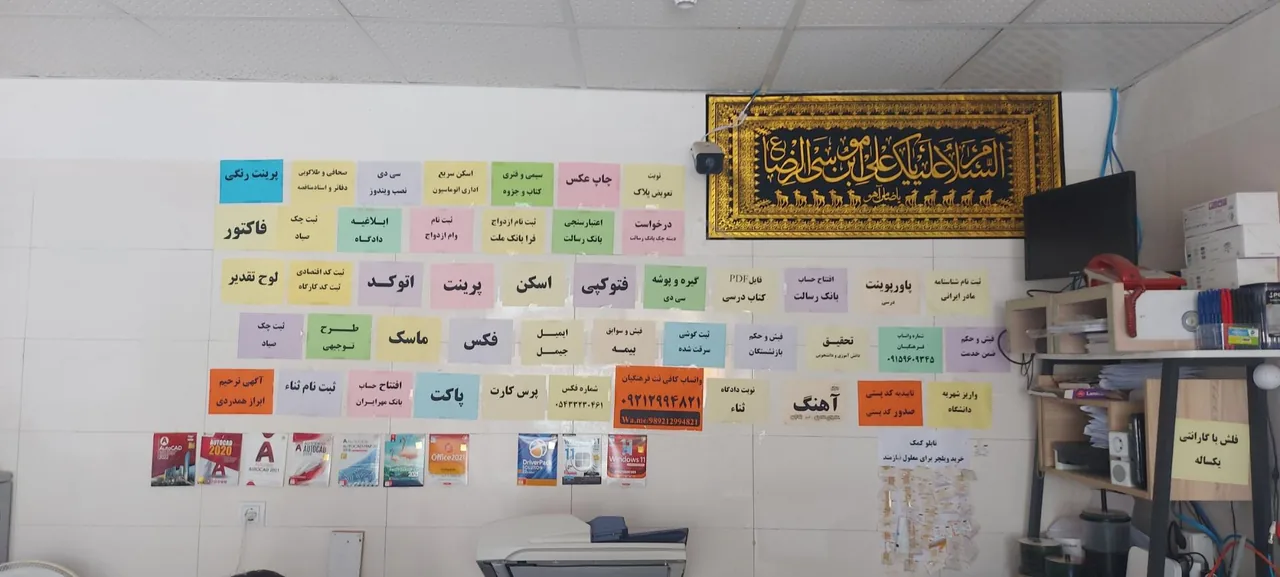 السَّلامُ عَلَيْكَ يا عَلِيَّ بْنَ مُوسَى الرِّضَا
یا ضامن آهو
نوبت
تعویض پلاک
چاپ عکس
سیمی و فنری
کتاب و جزوه
اسکن سریع
اداری اتوماسیون
سی دی
نصب ویندوز
صحافی و طلاکوبی
پرینت رنگی
درخواست
دسته چک بانک رسالت
اعتبارسنجی
بانک رسالت
ثبت نام ازدواج
فرا بانک ملت
ثبت نام
وام ازدواج
ابلاغیه
دادگاه
ثبت چک
صیاد
فاکتور
ثبت نام شناسنامه
مادر ایرانی
پاورپوینت
درسی
افتتاح حساب
بانک رسالت
فایل PDF
کتاب درسی
گیره و پوشه
سی دی
فتوکپی
اسکن
پرینت
اتوکد
ثبت کد اقتصادی
ثبت کد کارگاه
لوح تقدیر
فیش و حکم
ضمن خدمت
شماره واتساپ
فرهنگیان
۰۹۱۵۹۶۰۹۳۴۵
تحقیق
دانش آموزی و دانشجویی
فیش و حکم
بازنشستگان
ثبت گوشی
سرقت شده
فیش و سوابق
بیمه
ایمیل
جیمیل
فکس
ماسک
طرح
توجیهی
ثبت چک
صیاد
واریز شهریه
دانشگاه
تاییدیه کد پستی
صدور کد پستی
آهنگ
نوبت دادگاه
ثناء
واتساب کافی نت فرهنگیان
۰۹۲۱۲۹۹۴۸۲۱
Wa.me/989212994821
شماره فکس
۰۵۴۳۳۲۳۰۴۶۱
پرس کارت
پاکت
افتتاح حساب
بانک مهر ایران
ثبت نام ثناء
آگهی ترحیم
ابراز همدردی
AUTOCAD
AUTOCAD
2020
AUTOCAD 2021
AUTOCAD
Office 2021
DriverPack
SOLUTION
11
Windows 11
تابلو کمک
خرید ویلچر برای معلول نیازمند
فلش با گارانتی
یکساله